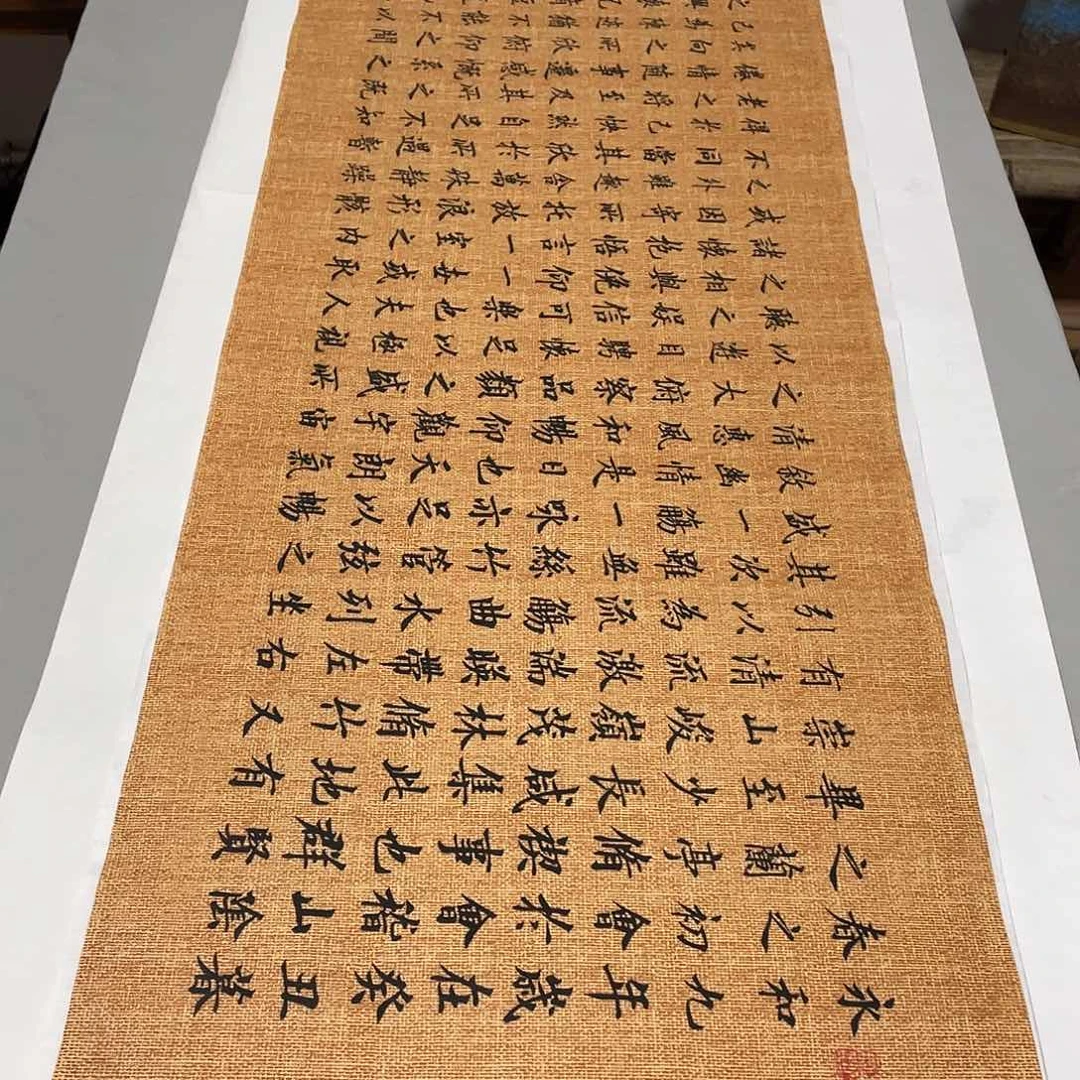 永和九年歲在癸丑暮
春之初會於會稽山陰
之蘭亭脩禊事也群賢
畢至少長咸集此地有
崇山峻嶺茂林脩竹又
有清流激湍暎帶左右
引以為流觴曲水列坐
其次雖無絲竹管弦之
盛一觴一咏亦足以暢
敘幽情是日也天朗氣
清惠風和暢仰觀宇宙
之大俯察品類之盛所
以遊目騁懷足以極視
聽之娛信可樂也夫人
之相與俛仰一世或取
諸懷抱悟言一室之內
或因寄所托放浪形骸
之外雖趣舍萬殊靜躁
不同當其欣於所遇暫
得於己快然自足不知
老之將至及其所之既
倦情隨事遷感慨係之
矣向之所欣俛仰之間